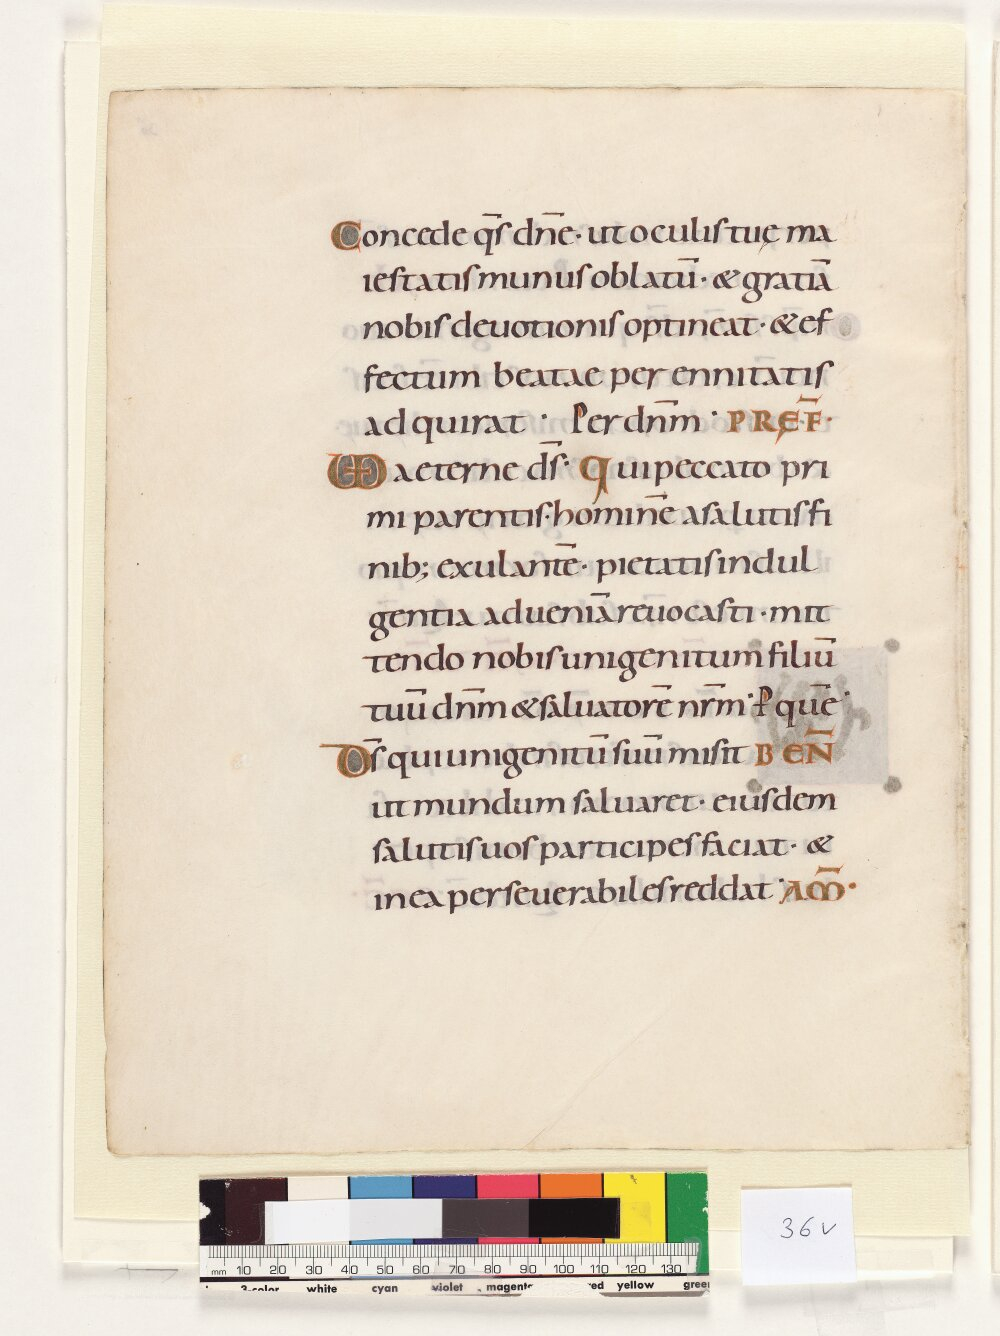 Concede q̄s dn̄e· ut oculis tuę ma
iestatis munus oblatū· & gratiā
nobis deuotionis optineat· & ef
fectum beatae perennitatis
adquirat · Per dn̄m · PRĘF̄·
VD aeterne ds̄· Qui peccato pri
mi parentis· hominē a salutis fi
nib; exulantē· pietatis indul
gentia ad ueniā reuocasti · mit
tendo nobis unigenitum filiū
tuū dn̄m & saluatorē nr̄m · P quē·
Ds̄ qui unigenitū suū misit BEN̄
ut mundum saluaret· eiusdem
salutis uos participes faciat· &
in ea perseuerabiles reddat · AM̄·
36v
mm 10 20 30 40 50 60 70 80 90 100 110 120 130
3-color white cyan violet magenta red yellow green